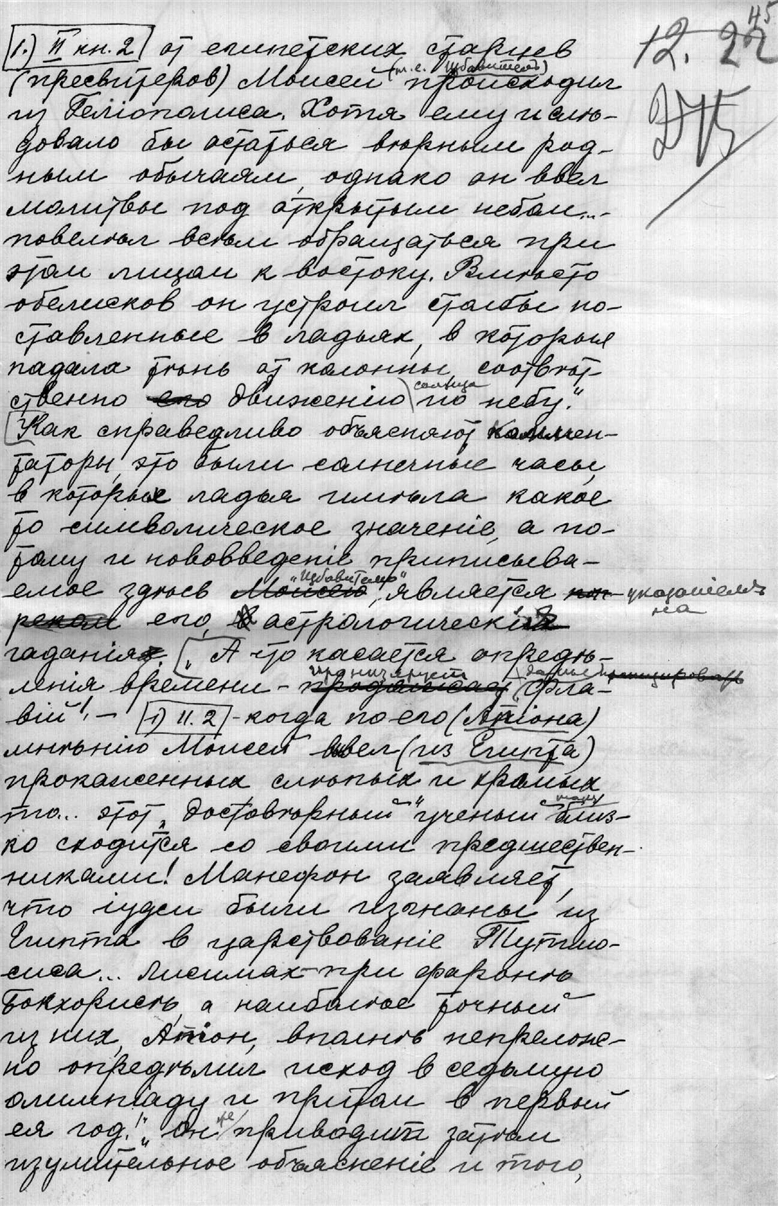 45
12. 22
275
1.) II кн. 2 от египетских старцев
(т. е. Избавитель)
(пресвитеров) Моисей происходил
из Гелiополиса. Хотя ему и слѣ-
довало бы остаться вѣрным род-
ным обычаям, однако он ввел
молитвы под открытым небом...-
повелѣл всѣм обращаться при
этом лицом к востоку. Вмѣсто
обелисков он устроил столбы по-
ставленные в ладьях, в которыя
падала тѣнь от колонны, соотвѣт-
солнца
ственно его движенiю по небу."
Как справедливо объясняют коммен-
таторы, это были солнечные часы,
в которых ладья имѣла какое
то символическое значенiе, а по-
тому и нововведенiе, приписыва-
"Избавителю"
емое здѣсь Моисею, является указанiем
на
его астрологическiя
гаданiя. "А что касается опредѣ-
иронизирует далее
ленiя времени - продолжает Фла-
вiй! - 1) II. 2 - когда по его (Апiона)
мнѣнiю Моисей ввел (из Египта)
прокаженных слѣпых и хромых
то... этот "достовѣрный" ученый близ-
ко сходится со своими предшествен-
никами! Манефон заявляет,
что iудеи были изгнаны из
Египта в царствованiе Тутмо-
сиса... Лисимах - при фараонѣ
Бокхорисѣ, а наиболѣе точный
из них, Апiон, вполнѣ непрелож-
но опредѣлил исход в седьмую
олимпiаду и притом в первый
ея год!" Он же приводит затѣм
изумительное объясненiе и того,